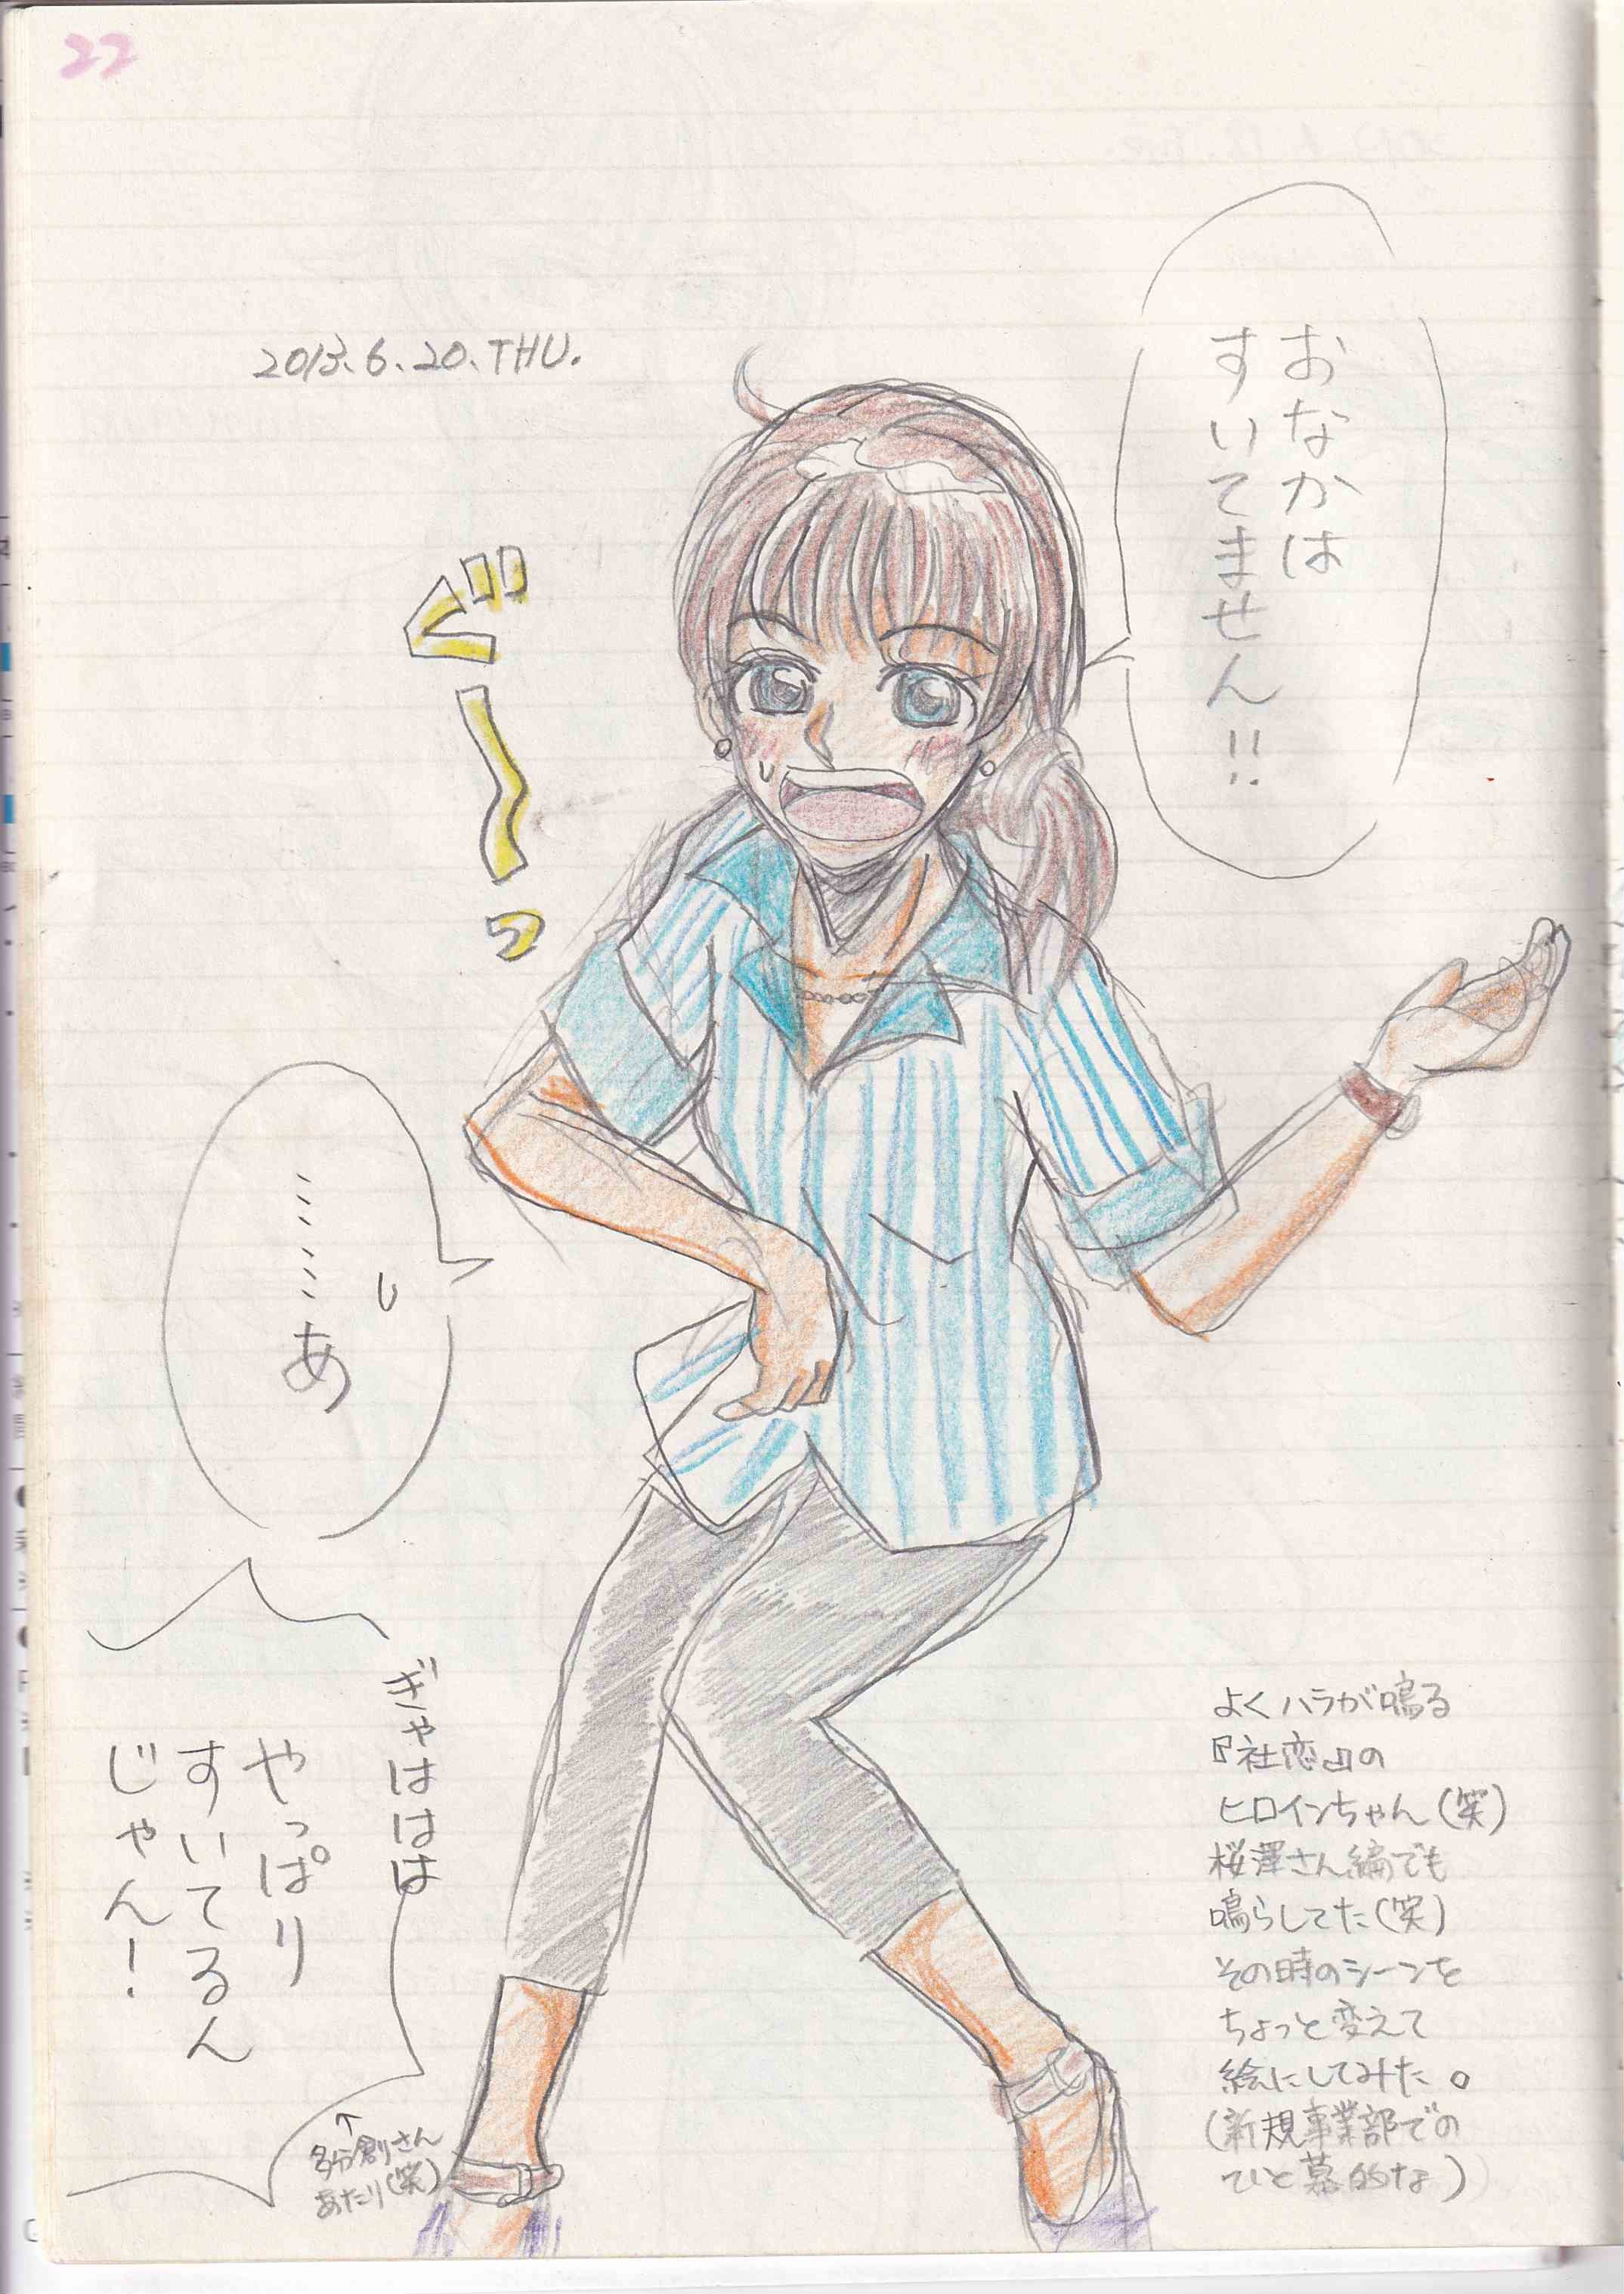 22
2013.6.20.THU.
おなかは
すいてません!!
ぐ～っ
……あ
ぎゃははは
やっぱり
すいてるん
じゃん!
↑
多分創さん
あたり(笑)
よくハラが鳴る
『社恋』の
ヒロインちゃん(笑)
桜澤さん編でも
鳴らしてた(笑)
その時のシーンを
ちょっと変えて
絵にしてみた。
(新規事業部での
ひと幕的な)